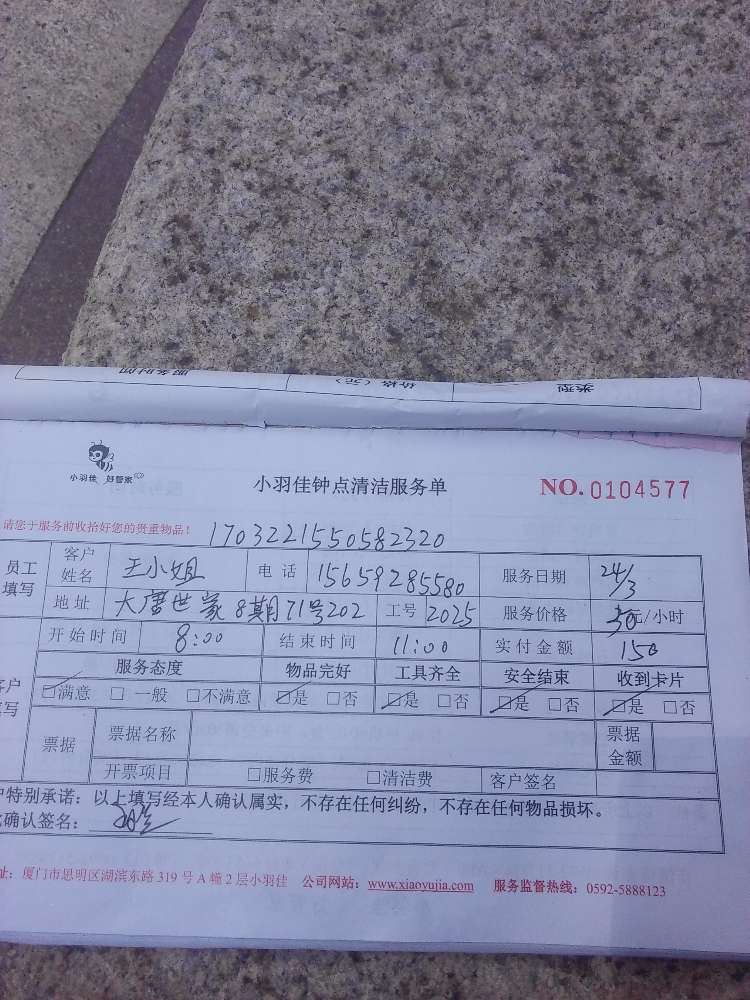 类型 价格（元） 服务时间
小羽佳 好管家
小羽佳钟点清洁服务单
NO. 0104577
请您于服务前收拾好您的贵重物品！
1703221550582320
员工填写 客户姓名 王小姐 电话 15659285580 服务日期 24/3
地址 大唐世家8期71号202 工号 2025 服务价格 元/小时
开始时间 8:00 结束时间 11:00 实付金额 150
服务态度 物品完好 工具齐全 安全结束 收到卡片
☑满意 □一般 □不满意 ☑是 □否 ☑是 □否 ☑是 □否 ☑是 □否
票据 票据名称 票据金额
开票项目 □服务费 □清洁费 客户签名
户特别承诺：以上填写经本人确认属实，不存在任何纠纷，不存在任何物品损坏。
确认签名：
址：厦门市思明区湖滨东路 319 号 A 幢 2 层小羽佳 公司网站：www.xiaoyujia.com 服务监督热线：0592-5888123